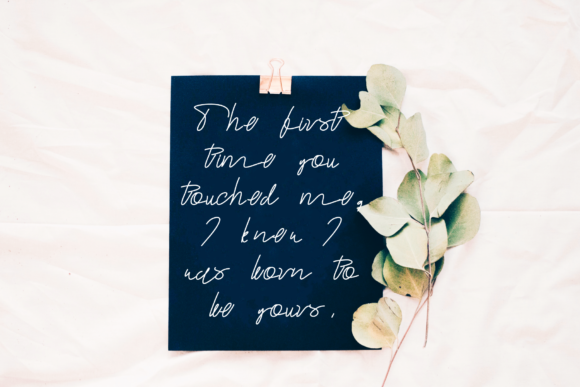 The first
time you
touched me,
I knew I
was born to
be yours.